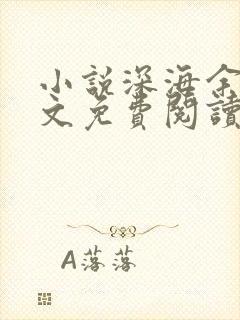 小説深海余
文免費閱讀
A落落